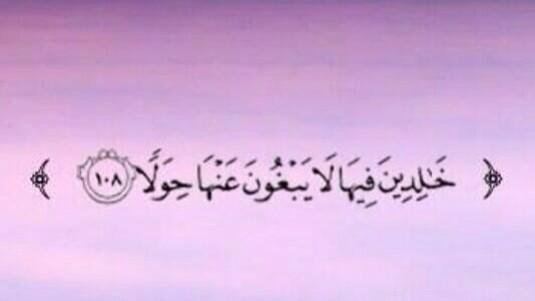 ﴿ خَٰلِدِينَ فِيهَا لَا يَبْغُونَ عَنْهَا حِوَلًا ١٠٨ ﴾